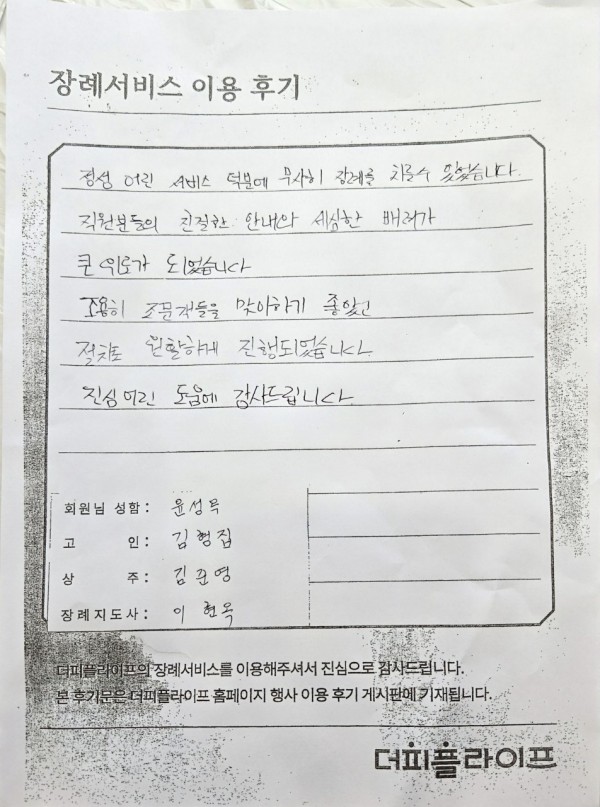 장례서비스 이용 후기
정성 어린 서비스 덕분에 무사히 장례를 치를수 있었습니다.
직원분들의 친절한 안내와 세심한 배려가
큰 위로가 되었습니다
조용히 조문객들을 맞아하기 좋았고
절차도 원활하게 진행되었습니다.
진심어린 도움에 감사드립니다.
회원님 성함: 윤성목
고 인: 김형집
상 주: 김준영
장례지도사: 이현옥
더피플라이프의 장례서비스를 이용해주셔서 진심으로 감사드립니다.
본 후기문은 더피플라이프 홈페이지 행사 이용 후기 게시판에 기재됩니다.
더피플라이프